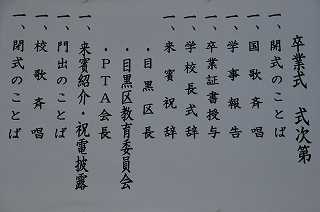 卒業式 式次第
一、開式のことば
一、国歌斉唱
一、学事報告
一、卒業証書授与
一、学校長式辞
一、来賓祝辞
・目黒区長
・目黒区教育委員会
・PTA会長
一、来賓紹介・祝電披露
一、門出のことば
一、校歌斉唱
一、閉式のことば